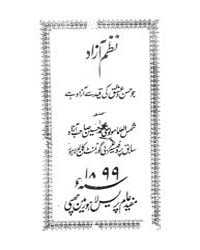 نظم آزاد
جو حسن و عشق کی قید سے آزاد ہے
شمس العلما مولوی محمد حسین صاحب آزاد
سابق پروفیسر عربی گورنمنٹ کالج لاہور
۱۸۹۹
مفید عام پریس لاہور میں چھپی